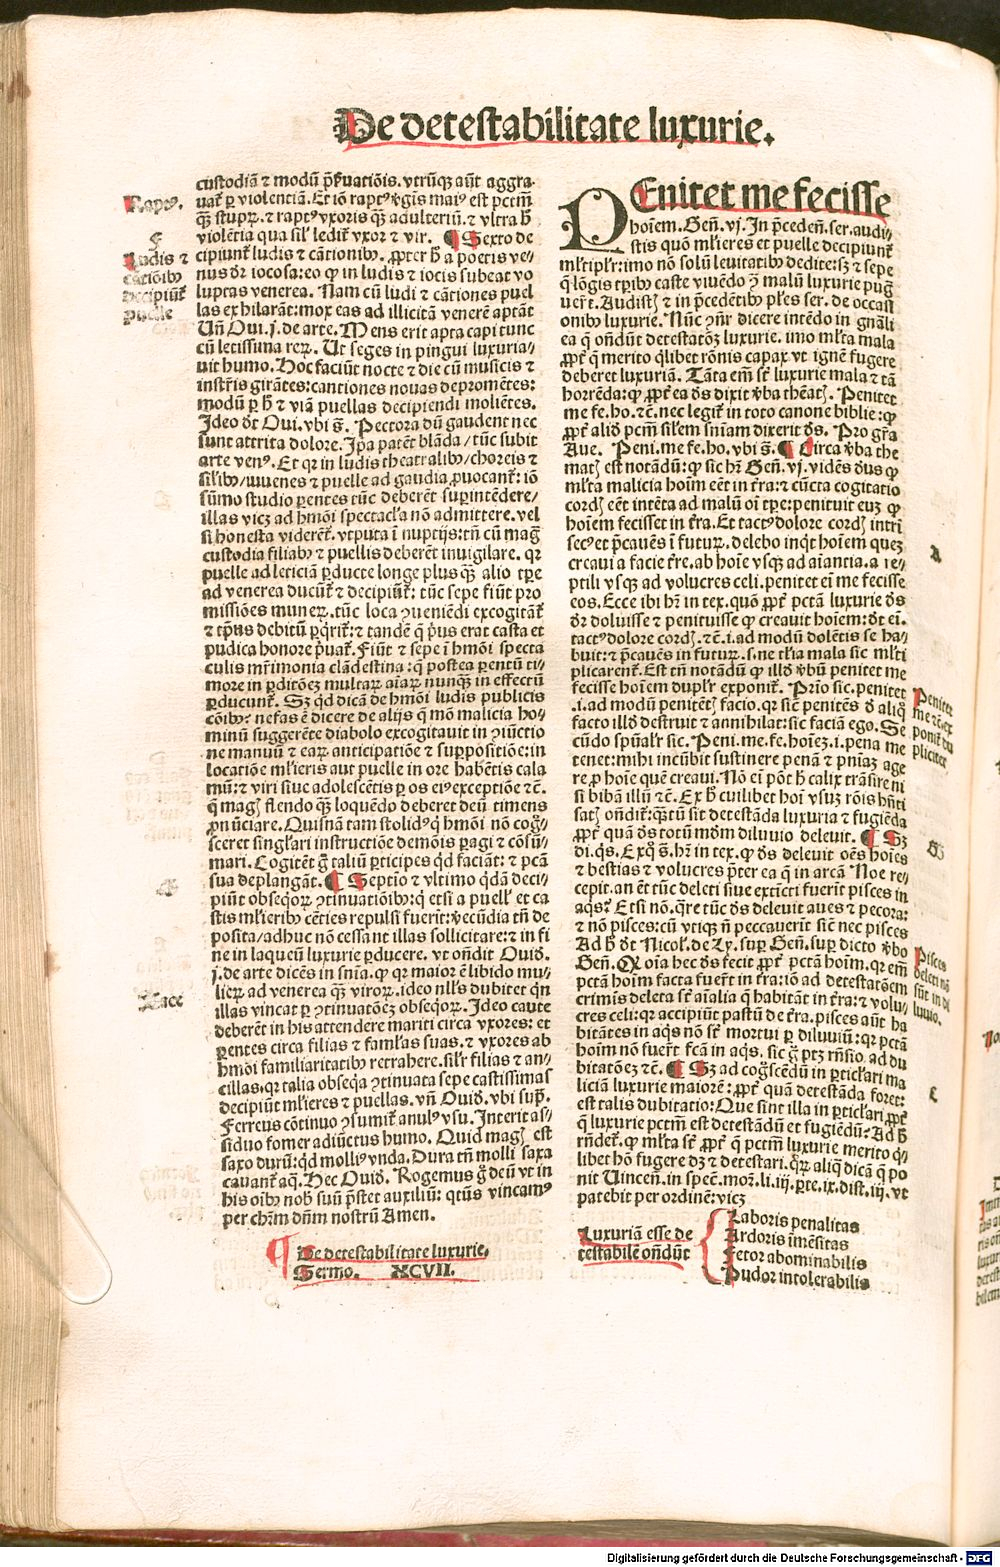 De detestabilitate luxurie.
custodiā ⁊ modū p̄ẜuatiōis. vtrūqꝫ aūt aggra-
uat᷑ ꝑ violentiā. Et iō raptꝰ v̓gis maiꝰ est pctm̄
qꝫ̄ stuprꝝ. ⁊ raptꝰ vxoris qꝫ̄ adulteriū. ⁊ vltra h̄
violētia qua sil' ledit᷑ vxor ⁊ vir. ¶ Sexto de
cipiunt᷑ ludis ⁊ cātionibꝰ. ꝓpter h̄ a poetis ve-
nus dr̄ iocosa: eo ꝙ in ludis ⁊ iocis subeat vo
luptas venerea. Nam cū ludi ⁊ cātiones puel
las exhilarāt: mox eas ad illicitā venerē aptāt
Un̄ Oui. j. de arte. Mens erit apta capi tunc
cū letissima reꝝ. Ut seges in pingui luxuria/
uit humo. Hoc faciūt nocte ⁊ die cū musicis ⁊
instr̄is girātes: cantiones nouas depromētes:
modū ꝑ h̄ ⁊ viā puellas decipiendi moliētes.
Ideo dt̄ Oui. vbi s̄. Pectora dū gaudent nec
sunt attrita dolore. Ip̄a patēt blāda/ tūc subit
arte venꝰ. Et qꝛ in ludis theatralibꝰ/ choreis ⁊
sil'ibꝰ/ iuuenes ⁊ puelle ad gaudia ꝓuocant᷑: iō
sūmo studio ꝑentes tūc deberēt suꝑintēdere/
illas vicꝫ ad hm̄oi spectacl'a nō admittere. vel
si honesta viderēt᷑. vtputa ī nuptijs: tn̄ cū maḡ
custodia filiabꝰ ⁊ puellis deberēt inuigilare. qꝛ
puelle ad leticiā ꝑducte longe plus qꝫ̄ alio tꝑe
ad venerea ducūt᷑ ⁊ decipiūt᷑: tūc sepe fiūt pro
missiōes muneꝝ. tūc loca ꝯueniēdi excogitāt᷑
⁊ tp̄us debitū ꝑq̄rit᷑: ⁊ tandē q̄ p̓us erat casta et
pudica honore p̓uat᷑. Fiūt ⁊ sepe ī hm̄oi specta
culis mr̄imonia clādestina: q̄ postea ꝑentū ti-
more in ꝑditiōeꝫ multaꝝ aīaꝝ nunqꝫ̄ in effectū
ꝑducunt᷑. Sꝫ qd̄ dicā de hm̄oi ludis publicis
cōibꝰ: nefas ē dicere de alijs q̄ mō malicia ho-
minū suggerēte diabolo excogitauit in ꝯiūctio
ne manuū ⁊ eaꝝ anticipatiōe ⁊ suppositiōe: in
locatiōe ml'ieris aut puelle in ore habētis cala
mū: ⁊ viri siue adolescētis ꝑ os ei' exceptiōe ⁊c̄.
q̄ magꝭ flendo qꝫ̄ loquēdo deberet deū timens
ꝓnūciare. Quisnā tam stolidꝰ q̄ hm̄oi nō cog̓/
sceret singl'ari instructiōe demōis ꝑagi ⁊ cōsū-
mari. Cogitēt g̊ taliū ꝑticipes qd̄ faciāt: ⁊ pcā
sua deplangāt. ¶ Septīo ⁊ vltimo q̄dā deci-
piūt obsequioꝝ ꝯtinuatiōibꝰ: q̄ etsi a puell' et ca
stis ml'ieribꝰ cēties repulsi fuerīt: v̓ecūdia tn̄ de
posita/ adhuc nō cessant illas sollicitare: ⁊ in fi
ne in laqueū luxurie ꝑducere. vt on̄dit Ouid.
j. de arte dicēs in sn̄ia. ꝙ qꝛ maior ē libido mu-
lieꝝ ad venerea qꝫ̄ viroꝝ. ideo nll's dubitet qn̄
illas vincat ꝑ ꝯtinuatōeꝫ obseqoꝝ. Ideo caute
deberēt in his attendere mariti circa vxores: et
ꝑentes circa filias ⁊ faml'as suas. ⁊ vxores ab
hm̄oi familiaritatibꝰ retrahere. sil'r filias ⁊ an-
cillas. qꝛ talia obseq̄a ꝯtinuata sepe castissimas
decipiūt ml'ieres ⁊ puellas. vn̄ Ouid. vbi sup̄.
Ferreus cōtinuo ꝯsumit᷑ anulꝰ vsu. Interit as-
siduo fomer adiūctus humo. Quid magꝭ est
saxo durū: qd̄ molliꝰ vnda. Dura tn̄ molli saxa
cauant᷑ aq̄. Hec Ouid. Rogemus g̊ deū vt in
his oībꝰ nobꝭ suū p̄stet auxiliū: q̄tūs vincamꝰ
per chm̄ dn̄m nostrū Amen.
¶ De detestabilitate luxurie.
Sermo. XCVII.
Raptꝰ.
Ludis ⁊
cātiōibꝰ
decipiūt᷑
puelle
PEnitet me fecisse
hoīem. Gen̄. vj. In p̄ceden̄. ser. audi-
stis quō ml'ieres et puelle decipiunt᷑
ml'tipl'r: imo nō solū leuitatibꝰ dedite: sꝫ ⁊ sepe
q̄ lōgis tꝑibꝰ caste viuēdo ꝯ̄ malū luxurie pug̓
uer̄t. Audistꝭ ⁊ in p̄cedētibꝰ pl'es ser. de occasi
onibꝰ luxurie. Nūc ꝯn̄r dicere intēdo in gn̄ali
ea q̄ on̄dūt detestatōꝫ luxurie. imo ml'ta mala
ꝓpt᷑ q̄ merito q̄libet rōnis capax vt ignē fugere
deberet luxuriā. Tāta em̄ st̄ luxurie mala ⁊ tā
horrēda: ꝙ ꝓpt᷑ ea ds̄ dixit v̓ba thēatꝭ. Penitet
me fe. ho. ⁊c̄. nec legit᷑ in toto canone biblie: ꝙ
ꝓpt᷑ aliō pcm̄ sil'em sn̄iam dixerit ds̄. Pro gr̄a
Aue. Peni. me fe. ho. vbi s̄. ¶ Circa v̓ba the
matꝭ est notādū: ꝙ sic hr̄ Gen̄. vj. vidēs dn̄s ꝙ
ml'ta malicia hoīm eēt in t̄ra: ⁊ cūcta cogitatio
cordꝭ eēt intēta ad malū oī tꝑe: penituit euꝫ ꝙ
hoīem fecisset in t̄ra. Et tactꝰ dolore cordꝭ intrī
secꝰ et p̄cauēs ī futuꝝ. delebo inq̇t hoīem quez
creaui a facie t̄re. ab hoīe vsqꝫ ad aīantia. a re-
ptili vsqꝫ ad volucres celi. penitet eī me fecisse
eos. Ecce ibi hr̄ in tex. quō ꝓpt᷑ pctā luxurie ds̄
dr̄ doluisse ⁊ penituisse ꝙ creauit hoīem: dt̄ eī.
tactꝰ dolore cordꝭ. ⁊c̄. i. ad modū dolētis se ha-
buit: ⁊ p̄cauēs in futuꝝ. s. ne tl'ia mala sic ml'ti
plicarent᷑. Est tn̄ notādū ꝙ illō v̓bū penitet me
fecisse hoīem dupl'r exponit᷑. Prīo sic. penitet
.i. ad modū penitētꝭ facio. qꝛ sic̄ penitēs d̓ aliq̊
facto illō destruit ⁊ annihilat: sic faciā ego. Se
cūdo sp̄ual'r sic. Peni. me. fe. hoīeꝫ. i. pena me
tenet: mihi incūbit sustinere penā ⁊ pniaꝫ age
re ꝓ hoīe quē creaui. Nō eī pōt h̓ calix trāsire ni
si bibā illū ⁊c̄. Ex h̄ cuilibet hoī vsuꝫ rōis hn̄ti
satꝭ on̄dit᷑: qꝫ̄tū sit detestāda luxuria ⁊ fugiēda
ꝓpt᷑ quā ds̄ totū mōm diluuio deleuit. ¶ Sꝫ
di. qs. Ex q̊ s̄. hr̄ in tex. ꝙ ds̄ deleuit oēs hoīes
⁊ bestias ⁊ volucres p̄ter ea q̄ in arcā Noe re-
cepit. an ēt tūc deleti siue extīcti fuerīt pisces in
aqs? Et si nō. q̄re tūc ds̄ deleuit aues ⁊ pecora:
⁊ nō pisces: cū vtiqꝫ n̄ peccauerīt sic̄ nec pisces
Ad h̄ dt̄ Nicol'. de Ly. suꝑ Gen̄. suꝑ dicto v̓bo
Gen̄. Q oīa hec ds̄ fecit ꝓpt᷑ pctā hoīm. qꝛ em̄
pctā hoīm facta fuer̄t in t̄ra: iō ad detestatōem
crimīs deleta st̄ aīalia q̄ habitāt in t̄ra: ⁊ volu-
cres celi: qꝛ accipiūt pastū de t̄ra. pisces aūt ha
bitātes in aqs nō st̄ mortui ꝑ diluuiū: qꝛ pctā
hoīm nō fuer̄t fcā in aqs. sic g̊ ptꝫ rn̄sio ad du
bitatōeꝫ ⁊c̄. ¶ Sꝫ ad cog̓scēdū in ꝑticl'ari ma
liciā luxurie maiorē: ꝓpt᷑ quā detestāda foret:
est talis dubitatio: Que sint illa in ꝑticl'ari ꝓpt᷑
q̄ luxurie pctm̄ est detestādū et fugiēdū? Ad h̄
rn̄det᷑. ꝙ ml'ta st̄ ꝓpt᷑ q̄ pctm̄ luxurie merito q̇-
libet hō fugere dꝫ ⁊ detestari. q̊ꝝ aliq̄ dicā q̄ po
nit Uincen̄. in spec̄. mor'. li. iij. ꝑte. ix. dist. iij. vt
patebit per ordinē: vicꝫ
Luxuriā esse de
testabilē on̄dūt
Laboris penalitas
Ardoris imēsitas
Fetor abominabilis
Pudor intolerabilis
A
Penitet
me ⁊c̄ ex
ponit᷑ du
pliciter.
B
Pisces
deleti nō
sūt in di
luuio.
C
Digitalisierung gefördert durch die Deutsche Forschungsgemeinschaft - DFG